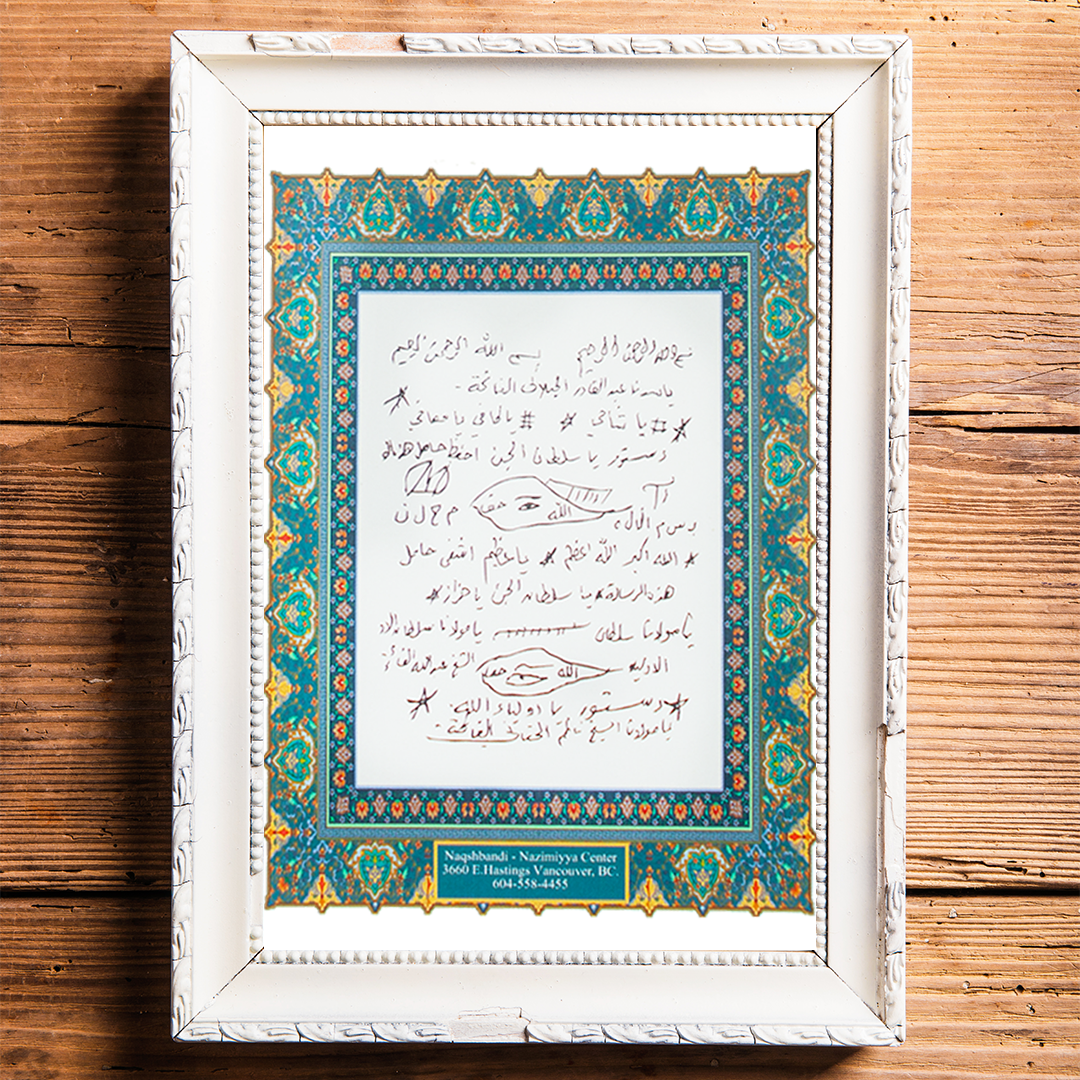 بسم الله الرحمن الرحيم بسم الله الرحمن الرحيم
يا سيدنا عبد القادر الجيلاني الفاتحة -
# يا شافي * # يا كافي يا معافي
دستور يا سلطان الجن احفظ حامل هذه
الله حق م ح ل ن
* الله اكبر الله اعظم * يا عظيم اشفي حامل
هذه الرسالة * يا سلطان الجن يا
يا مولانا سلطان يا مولانا سلطان الاولياء
الاولياء الله حق الشيخ عبدالله الفائز
دستور يا اولياء الله -
يا مولانا الشيخ ناظم الحقاني الفاتحة -
Naqshbandi - Nazimiyya Center
3660 E.Hastings Vancouver, BC.
604-558-4455